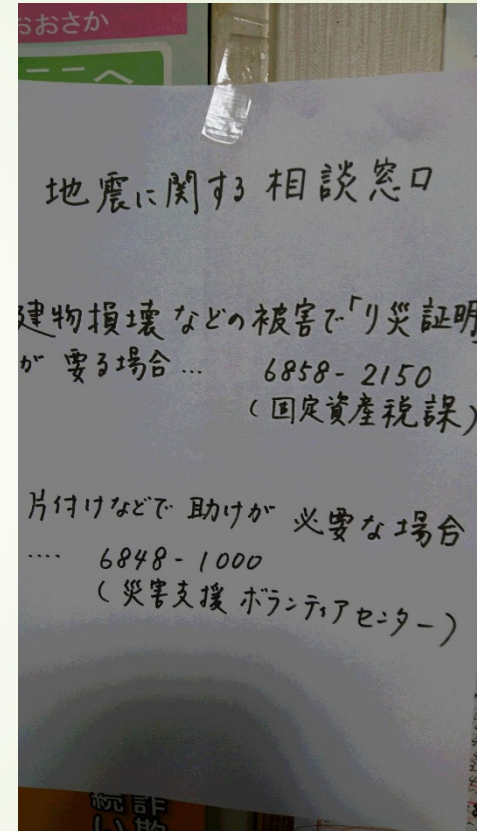 おおさか
地震に関する相談窓口
建物損壊などの被害で「り災証明」
が要る場合… 6858-2150
(固定資産税課)
片付けなどで助けが必要な場合
‥‥ 6848-1000
(災害支援ボランティアセンター)